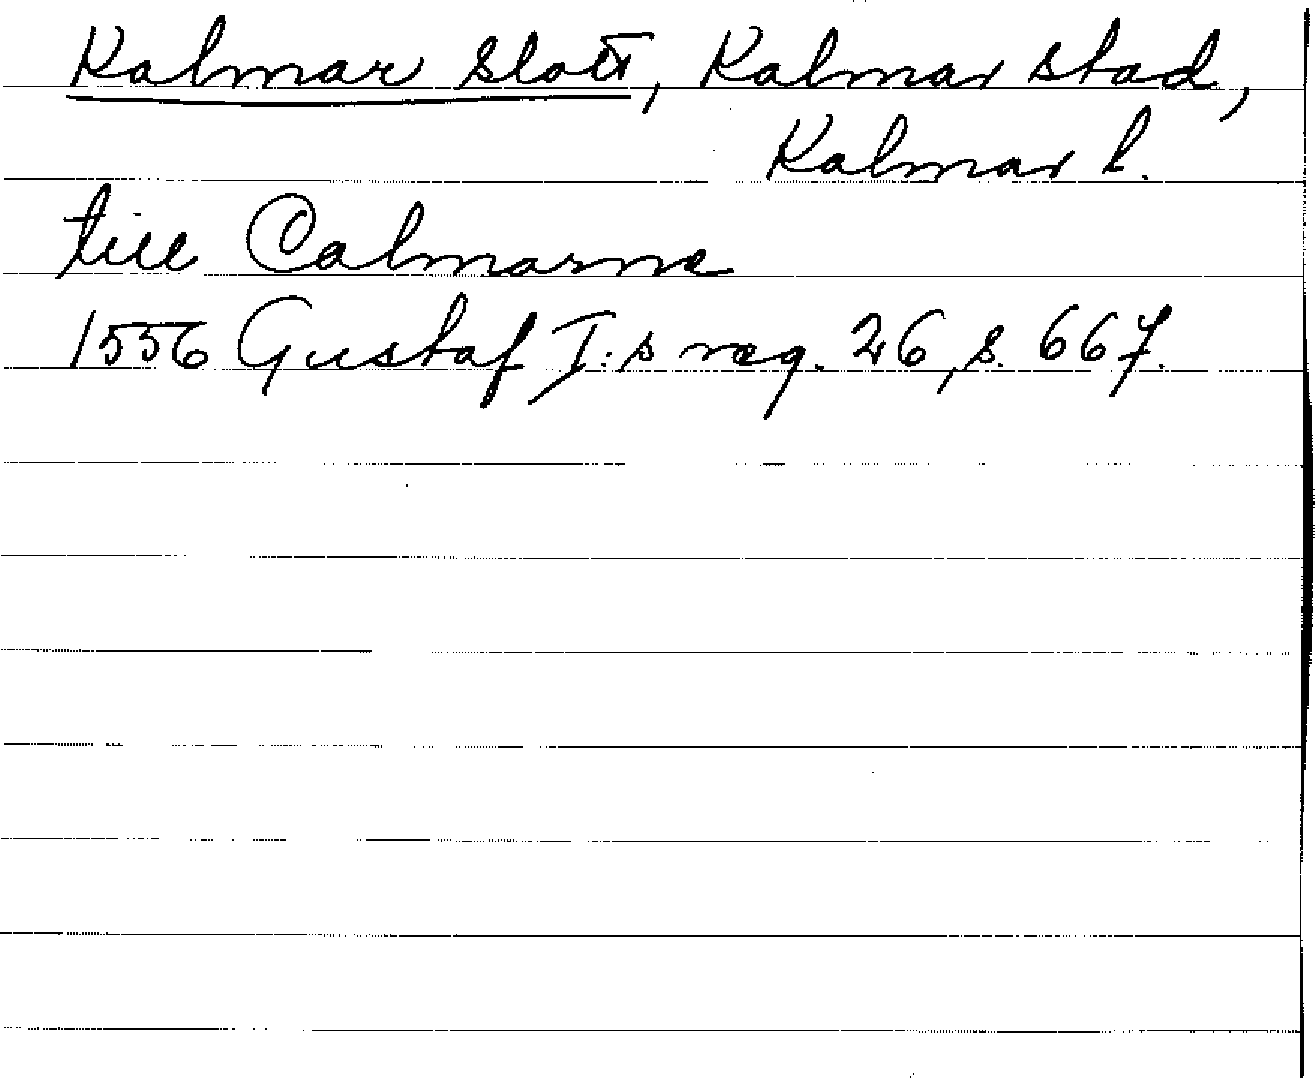 Kalmar Slott, Kalmar stad,
Kalmar l.
till Calmarne
1556 Gustaf I:s reg. 26, s. 667.